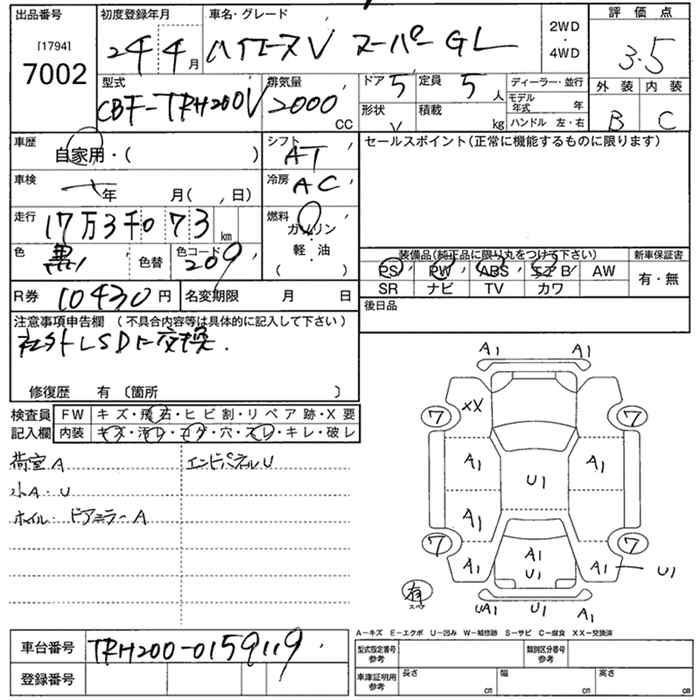 出品番号 初度登録年月 車名・グレード 2WD・4WD 評価点
[1794] 7002 24年4月 ハイエースV スーパーGL 3.5
型式 排気量 ドア 5 定員 5人 ディーラー・並行 外装 内装
CBF-TRH200V 2000cc 形状 V 積載 kg モデル年式 年 ハンドル 左・右 B C
車歴 自家用・( ) シフト AT セールスポイント(正常に機能するものに限ります)
車検 年 月( , 日) 冷房 AC
走行 17万3千073km 燃料 ガソリン・軽・油 ( )
色 黒 色替 色コード 209 装備品(純正品に限り丸をつけて下さい) 新車保証書
PS PW ABS エアB AW 有・無
R券 10430円 名変期限 月 日 SR ナビ TV カワ
注意事項申告欄 (不具合内容等は具体的に記入して下さい) 後日品
社外LSDに交換.
修復歴 有〔箇所 〕
検査員 FW キズ・飛石・ヒビ割・リペア跡・X要
記入欄 内装 キズ・汚レ・コゲ・穴・スレ・キレ・破レ
荷室A エンドパネルU
小A・U
ホイル・ドアミラーA
A1 A1
7 XX 7
A1 U1 A1
A1
7 A1 A1 U1 A1 7 U1
有 スペア UA1 U1 A1
A-キズ E-エクボ U-凹み W-補修跡 S-サビ C-腐食 XX-交換済
車台番号 TRH200-0159119 型式指定番号 参考 類別区分番号 参考
登録番号 車庫証明用 参考 長さ cm 幅 cm 高さ cm